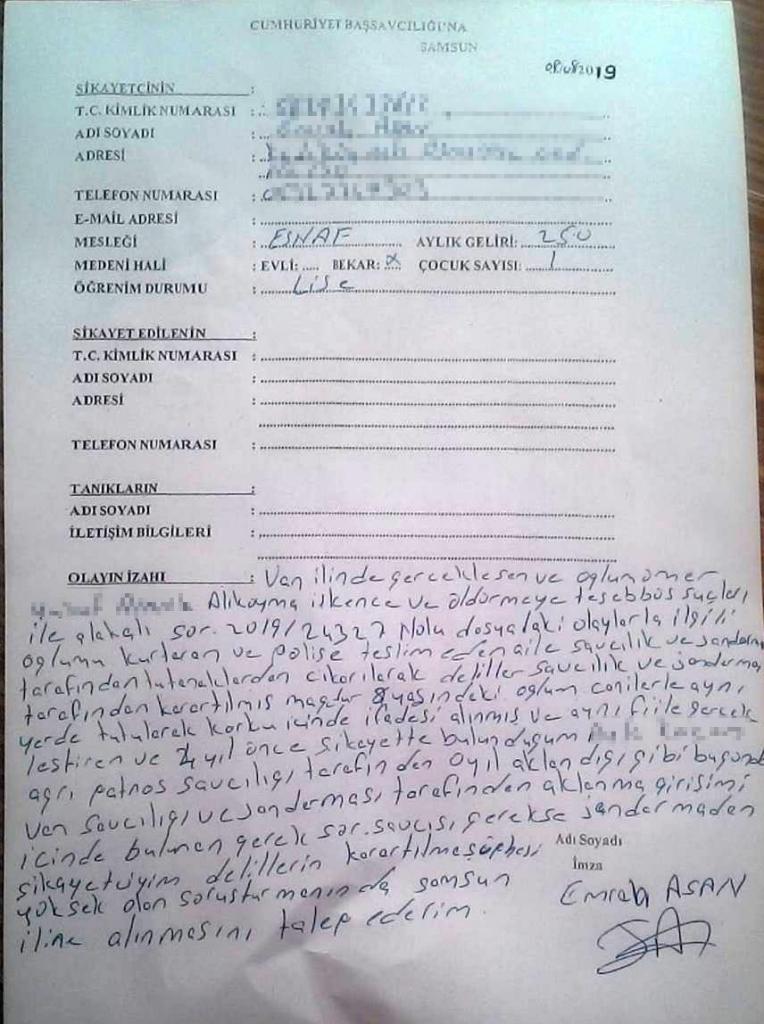 CUMHURİYET BAŞSAVCILIĞI'NA
SAMSUN
08/08 2019
ŞİKAYETCİNİN :
T.C. KİMLİK NUMARASI :
ADI SOYADI :
ADRESİ :
TELEFON NUMARASI :
E-MAİL ADRESİ :
MESLEĞİ : ESNAF AYLIK GELİRİ: 250
MEDENİ HALİ : EVLİ: ..... BEKAR: X ÇOCUK SAYISI: 1
ÖĞRENİM DURUMU : Lise
ŞİKAYET EDİLENİN :
T.C. KİMLİK NUMARASI :
ADI SOYADI :
ADRESİ :
TELEFON NUMARASI :
TANIKLARIN :
ADI SOYADI :
İLETİŞİM BİLGİLERİ :
OLAYIN İZAHI : Van ilinde gerceklesen ve oglum ömer
Alıkoyma işkence ve öldürmeye teşebbüs suçları
ile alakalı sor. 2019/24327 Nolu dosyadaki olaylarla ilgili
oglumu kurtaran ve polise teslim eden aile savcılık ve jandarma
tarafından tutanaklardan cikarılarak deliller savcılık ve jandarma
tarafından karartılmış magdur 8 yasındeki oglum canilerle aynı
yerde tutularak korku icinde ifadesi alınmış ve aynı fiile gercek
lestiren ve 4 yıl önce sikayette bulundugum
agrı patnos savcılıgı tarafından 0 yıl aklandıgı gibi bugünde
van savcılıgı ve jandarması tarafından aklanma girisimi
icinde bulunan gerek sor. savcısı gerekse jandarmadan
sikayetciyim delillerin karartılma şüphesi
yüksek olan sorusturmanında samsun
iline alınmasını talep ederim.
Adı Soyadı
İmza
Emrah ASAN